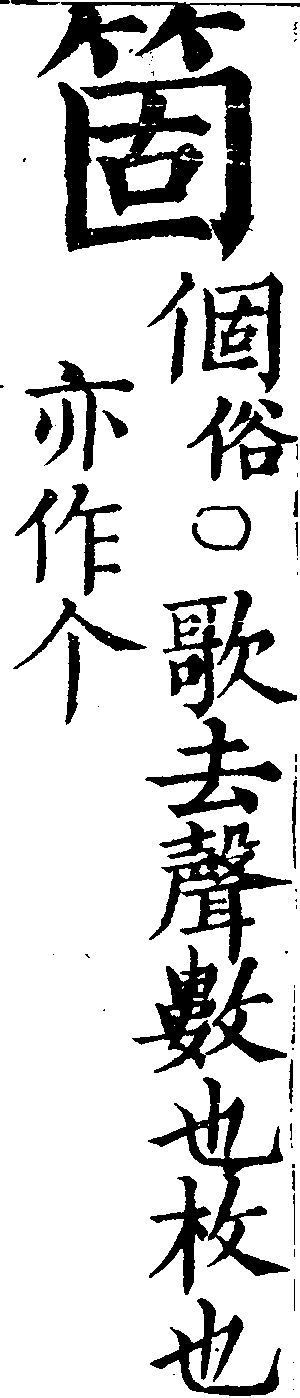 箇
個俗○歌去聲數也枚也
亦作个